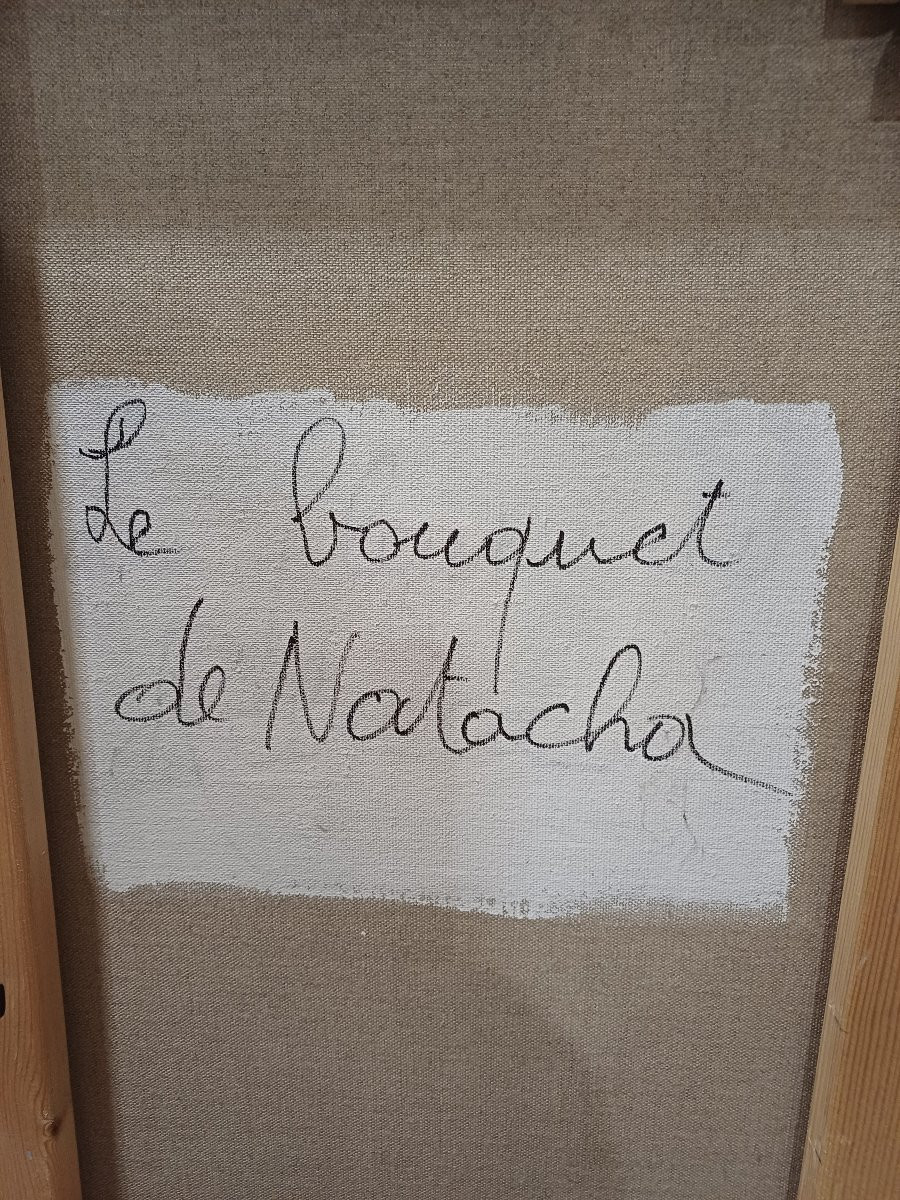 Le bouquet
de Natacha